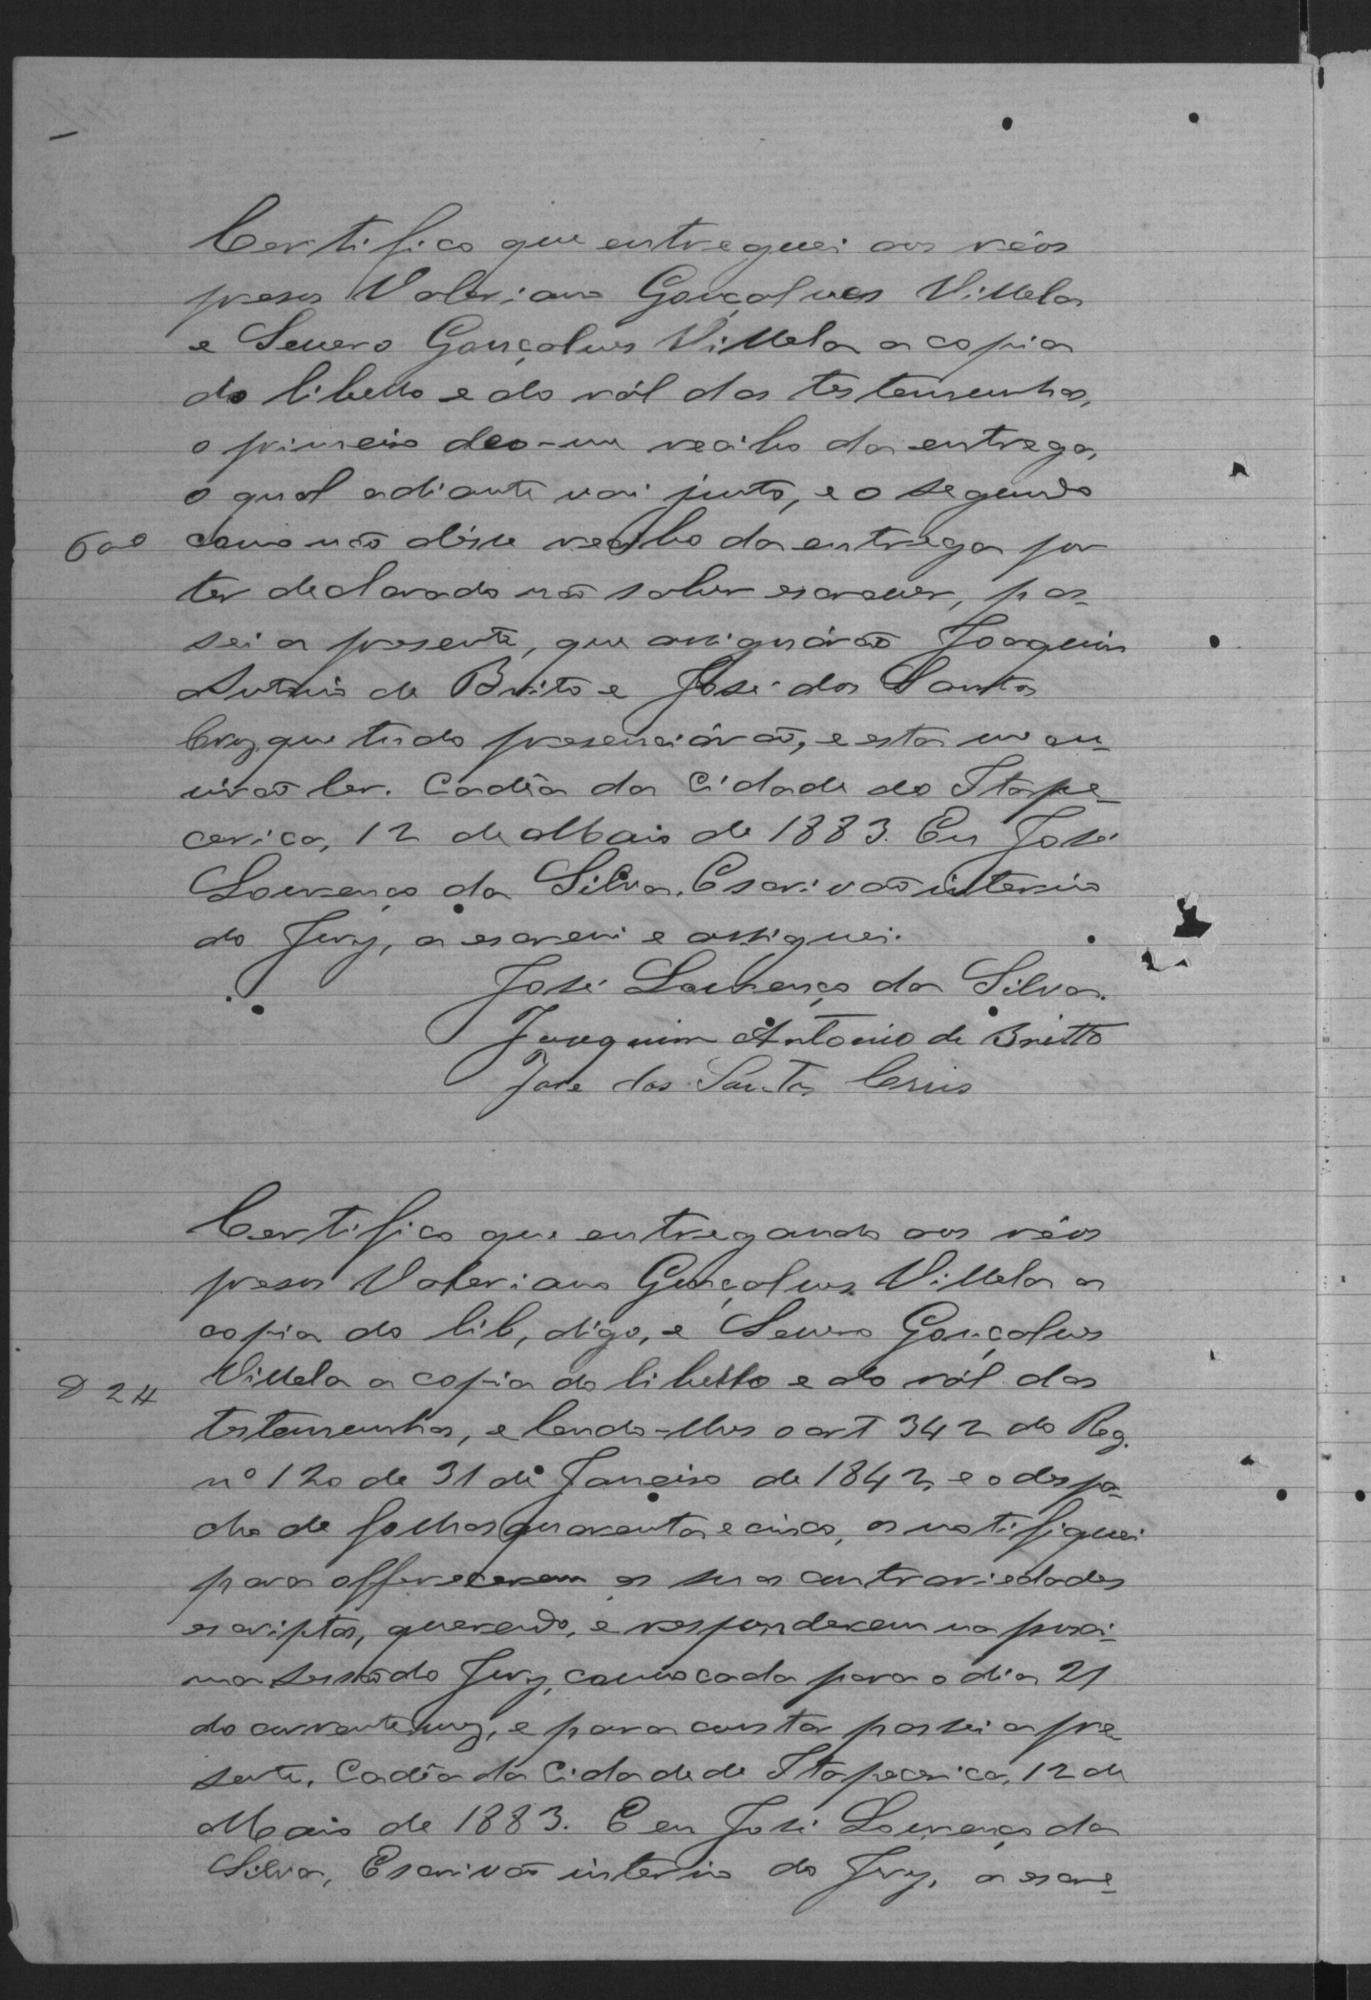 Certifico que entreguei aos réos
presos Valeriano Gonçalves Villela
e Severo Gonçalves Villela a copia
do libello e do ról das testemunhas,
o primeiro deo-me recibo da entrega,
o qual adiante vai junto, e o segundo
600 como não désse recibo da entrega por
ter declarado não saber escrever, pas-
sei a presente, que assignárão Joaquim
Antonio de Britto e José dos Santos
Cruz, que tudo presenciárão, e esta me ou-
virão ler. Cadêa da Cidade do Itape-
cerica, 12 de Maio de 1883. Eu José
Lourenço da Silva, Escrivão interino
do Jury, a escrevi e assignei.
José Lourenço da Silva.
Joaquim Antonio de Britto
Jose dos Santos Crus
Certifico que entregando aos réos
presos Valeriano Gonçalves Villela a
copia do lib, digo, e Severo Gonçalves
Villela a copia do libello e do ról das
24
testemunhas, e lendo-lhes o art 342 do Reg.
nº 120 de 31 de Janeiro de 1842, e o despa-
cho de folhas quarenta e cinco, os notifiquei
para offerecerem as suas contrariedades
escriptas, querendo, e responderem na proxi-
ma sessão do Jury, convocada para o dia 21
do corrente mez, e para constar passei a pre-
sente. Cadêa da Cidade de Itapecerica, 12 de
Maio de 1883. E eu José Lourenço da
Silva, Escrivão interino do Jury, a escre-